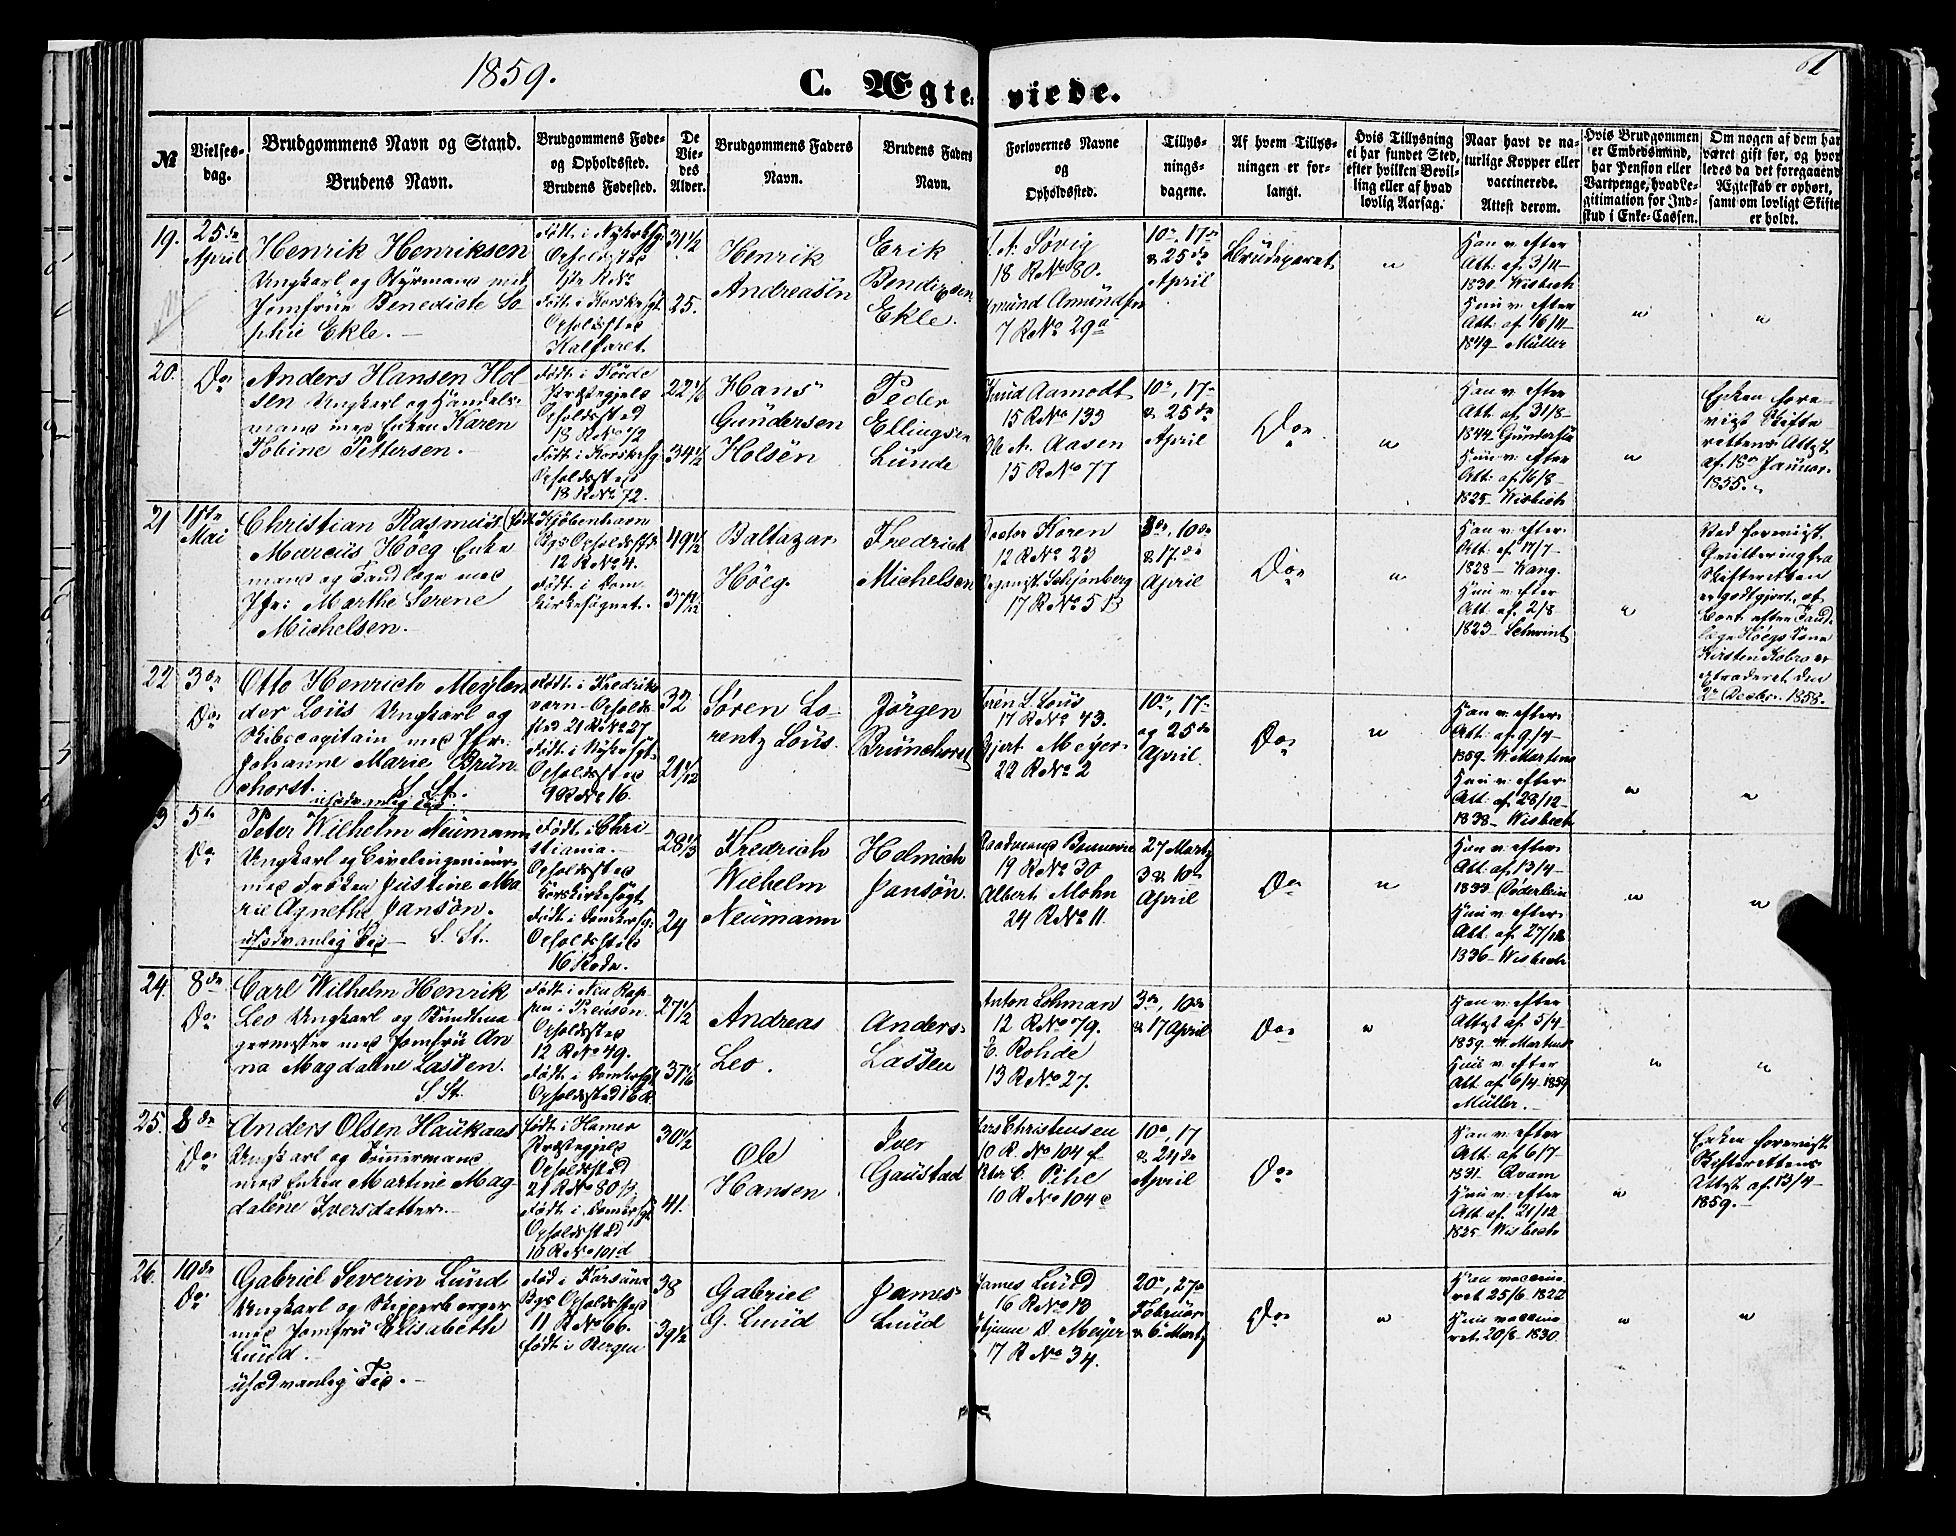 1859.
C. Ægteviede.
61
№
Vielses-
dag.
Brudgommens Navn og Stand.
Brudens Navn.
Brudgommens Føde-
og Opholdssted.
Brudens Fødested.
De
Vie-
des
Alder.
Brudgommens Faders
Navn.
Brudens Faders
Navn.
Forlovernes Navne
og
Opholdssted.
Tillys-
nings-
dagene.
Af hvem Tillys-
ningen er for-
langt.
Hvis Tillysning
ei har fundet Sted,
efter hvilken Bevil-
ling eller af hvad
lovlig Aarsag.
Naar havt de na-
turlige Kopper eller
vaccinerede.
Attest derom.
Hvis Brudgommen
er Embedsmand,
har Pension eller
Vartpenge, hvad Le-
gitimation for Ind-
skud i Enke-Cassen.
Om nogen af dem har
været gift før, og hvor-
ledes da det foregaaende
Ægteskab er ophørt,
samt om lovligt Skifte
er holdt.
19.
25de
April
Henrik Henriksen
Ungkarl og Styrmand med
Jomfrue Benedicte So-
phie Ekle.
Født i Nykirksg.
Opholdsted
Født i Korskirksg.
Opholdsted
Kalfaret
31 1/2
25.
Henrik
Andreasen
Erik
Bendixsen
Ekle.
A. Søvig
18 R No 80.
Amund Amundsen
7 R No 29a
10de, 17de
& 25de
April
Brudeparret
"
Han v. efter
Att. af 3/11
1830. Wisbech
Hun v. efter
Att: af 16/11
1849 Müller
"
"
20.
Do
Anders Hansen Hol-
sen Ungkarl og Handels-
mand med Enken Karen
Tobine Pettersen.
Født i Førde
Præstegjeld
Opholdsted
18 R No 72
Født i Korskirksg.
Opholdsted
18 R No 72.
22 1/6
34 1/2
Hans
Gundersen
Holsen
Peder
Ellingsen
Lunde
Knud Aamodt
15 R No 133
Ole A. Aasen
15 R No 77
10de, 17de
& 25de
April
Do
"
Han v. efter
Att. af 31/8
1844 Gundersen
Hun v. efter
Att: af 16/8
1825 Wisbech
"
Enken fore-
vist Skifte
rettens Attest
af 18de Januar
1855.
21
1ste
Mai
Christian Rasmus
Marcus Høeg Enke
mand og Tandlæge med
Jfr: Marthe Serene
Michelsen.
Kjøbenhavn
Opholdsted
12 R No 4.
Født i Dom-
kirkesognet.
49 1/2
37 1/12
Baltazar
Høeg
Fredrich
Michelsen
Koren
12 R No 23
Schjønberg
17 R No 5 B
3de, 10de
& 17de
April
Do
"
Han v. efter
Att. af 17/7
1828 Wang.
Hun v. efter
Att: af 2/8
1823
"
Ved forevist
Qvittering fra
Skifteretten
er godtgjort, at
Boet efter Tand-
læge Høegs Kone
Kirsten Kobro er
extraderet den
2de Decbr. 1858.
22
3de
Do
Otto Henrich Meylen
der Louis Ungkarl og
Skibscapitain med Jfr.
Johanne Marie Brun
chorst. S. St.
usædvanlig Tid.
Født i Fredriks
værn Opholds
sted 21 R No 27
Født i Nykirksgt.
Opholdsted
9 R No 16.
32
21 1/12
Søren Lo-
rentz Louis.
Jørgen
Brunchorst
Søren L. Louis
17 R No 43.
Gjert Meyer
22 R No 2
10de, 17de
og 25de
April
Do
"
Han v. efter
Att: af 9/4
1859. W. Martens
Hun v. efter
Att: af 28/12
1838 Wisbech
"
"
23
5te
Do
Peter Wilhelm Neumann
Ungkarl og Civilingenieur
med Frøken Justine Ma-
rie Agnethe Janson.
usædvanlig Tid S. St.
Født i Chri-
stiania.
Opholdsted
Korskirkesogt
Født i Domkirksg.
Opholdsted
16 Rode.
28 1/3
24
Fredrich
Wilhelm
Neumann
Helmich
Janson.
Raadmand Bonnevie
19 R No 30
Albert Mohn
24 R No 11
27 Marts
3 & 10de
April
Do
"
Han v. efter
Att. af 13/4
1833
Hun v. efter
Att: af 27/12
1836 Wisbech
"
"
24.
8de
Do
Carl Wilhelm Henrik
Leo Ungkarl og Bundtma
germester med Jomfru An-
na Magdalene Lassen.
S. St.
Født i Neu Rup-
pin i Preusen.
Opholdsted
12 R No 49.
Født i Domkirksgt
Opholdsted 16 R.
27 1/2
37 1/6
Andreas
Leo.
Anders
Lassen
Anton Lohman
12 R No 79.
E. Rohde
13 R No 27.
3de, 10de
& 17 April
Do
"
Han v. efter
Attest af 5/4
1859. W. Martens
Hun v. efter
Att. af 6/4 1859
Müller.
"
"
25.
8de
Do
Anders Olsen Haukaas
Ungkarl og Tømmermand
med Enken Martine Mag-
dalene Iversdatter.
Født i Hammer
Præstegjeld
Opholdsted
21 R No 80 B.
Født i Domkirksgt
Opholdsted
10 R No 101d
30 1/2
41.
Ole
Hansen
Iver
Gaustad
Lars Christensen
10 R. No 104 f
C. Pihe
10 R No 104 e
10de, 17
& 24de
April
Do
Han v. efter
Att. af 6/7
1831. Qvam
Hun v. efter
Att. af 21/12
1825 Wisbech
"
Enken forevist
Skifterettens
Attest af 13/4
1859.
26.
10de
Do
Gabriel Severin Lund
Ungkarl og Skipperborger
med Jomfru Elisabeth
Lund.
usædvanlig Tid.
Fød i Farsund
Bye Opholdsted
11 R No 66.
født i Bergen
38
39 1/2
Gabriel
G. Lund
James
Lund
James Lund
16 R No 18
D. Meyer
17 R No 34.
20de, 27de
Februar
& 6. Marts
Do
"
Han vaccine
ret 25/6 1822
Hun vaccine
ret 20/8 1830
"
"